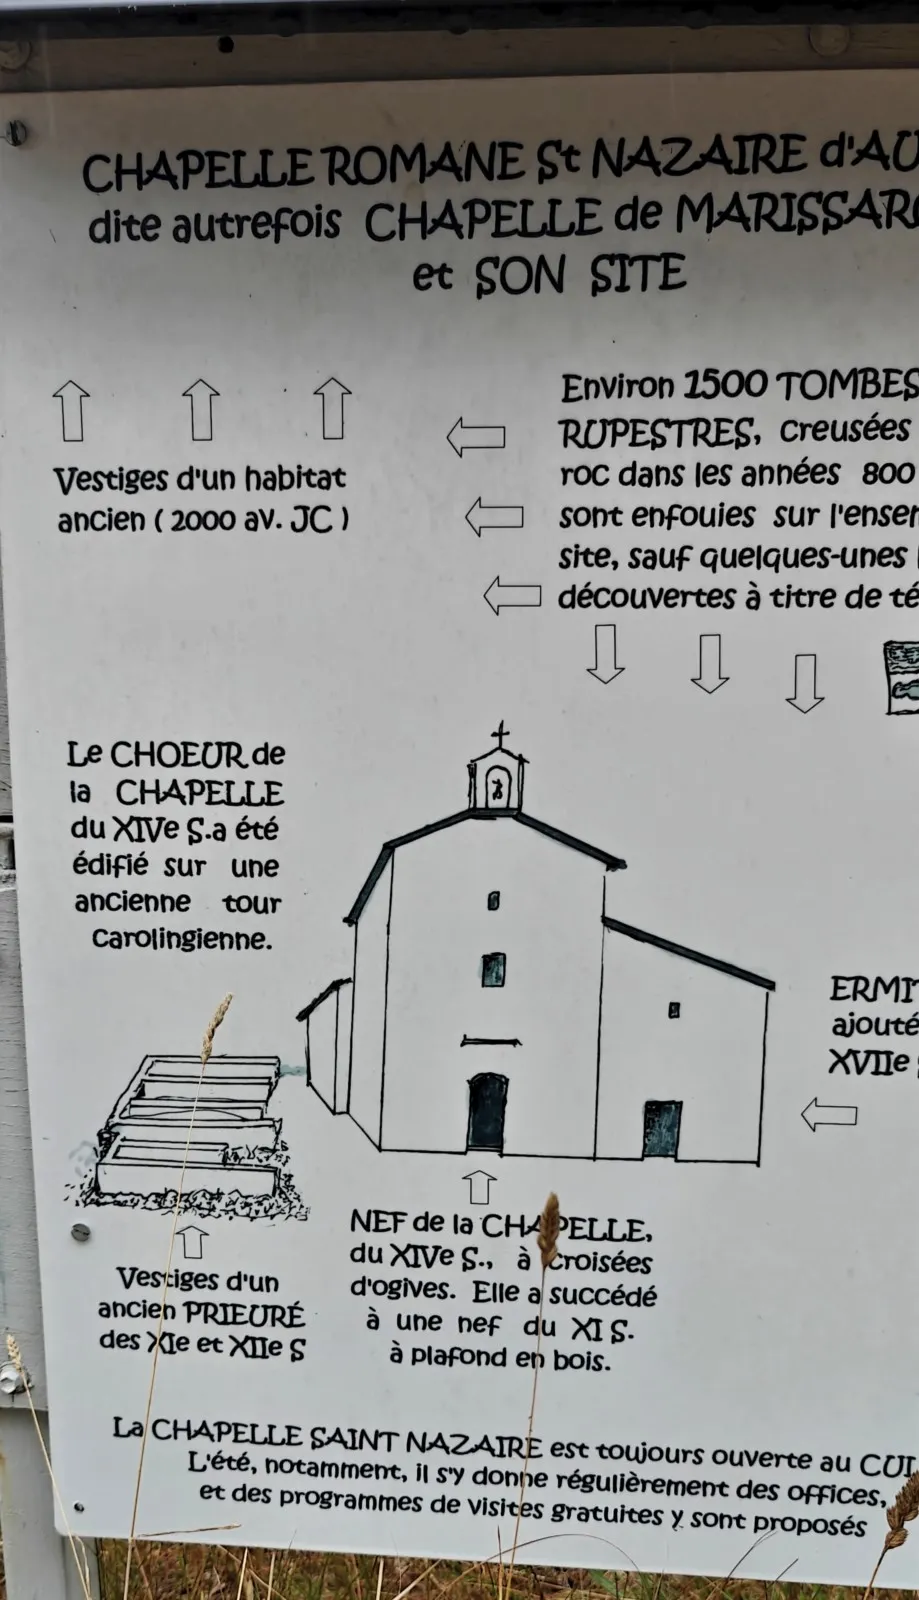 CHAPELLE ROMANE St NAZAIRE d'AU
dite autrefois CHAPELLE de MARISSAR
et SON SITE
Environ 1500 TOMBES
RUPESTRES, creusées
roc dans les années 800
sont enfouies sur l'enser
site, sauf quelques-unes
découvertes à titre de té
Vestiges d'un habitat
ancien ( 2000 av. JC )
Le CHOEUR de
la CHAPELLE
du XIVe S.a été
édifié sur une
ancienne tour
Carolingienne.
ERMI
ajouté
XVIIe
Vestiges d'un
ancien PRIEURÉ
des XIe et XIIe S
NEF de la CHAPELLE,
du XIVe S., à croisées
d'ogives. Elle a succédé
à une nef du XI S.
à plafond en bois.
La CHAPELLE SAINT NAZAIRE est toujours ouverte au CUL
L'été, notamment, il s'y donne régulièrement des offices,
et des programmes de visites gratuites y sont proposés